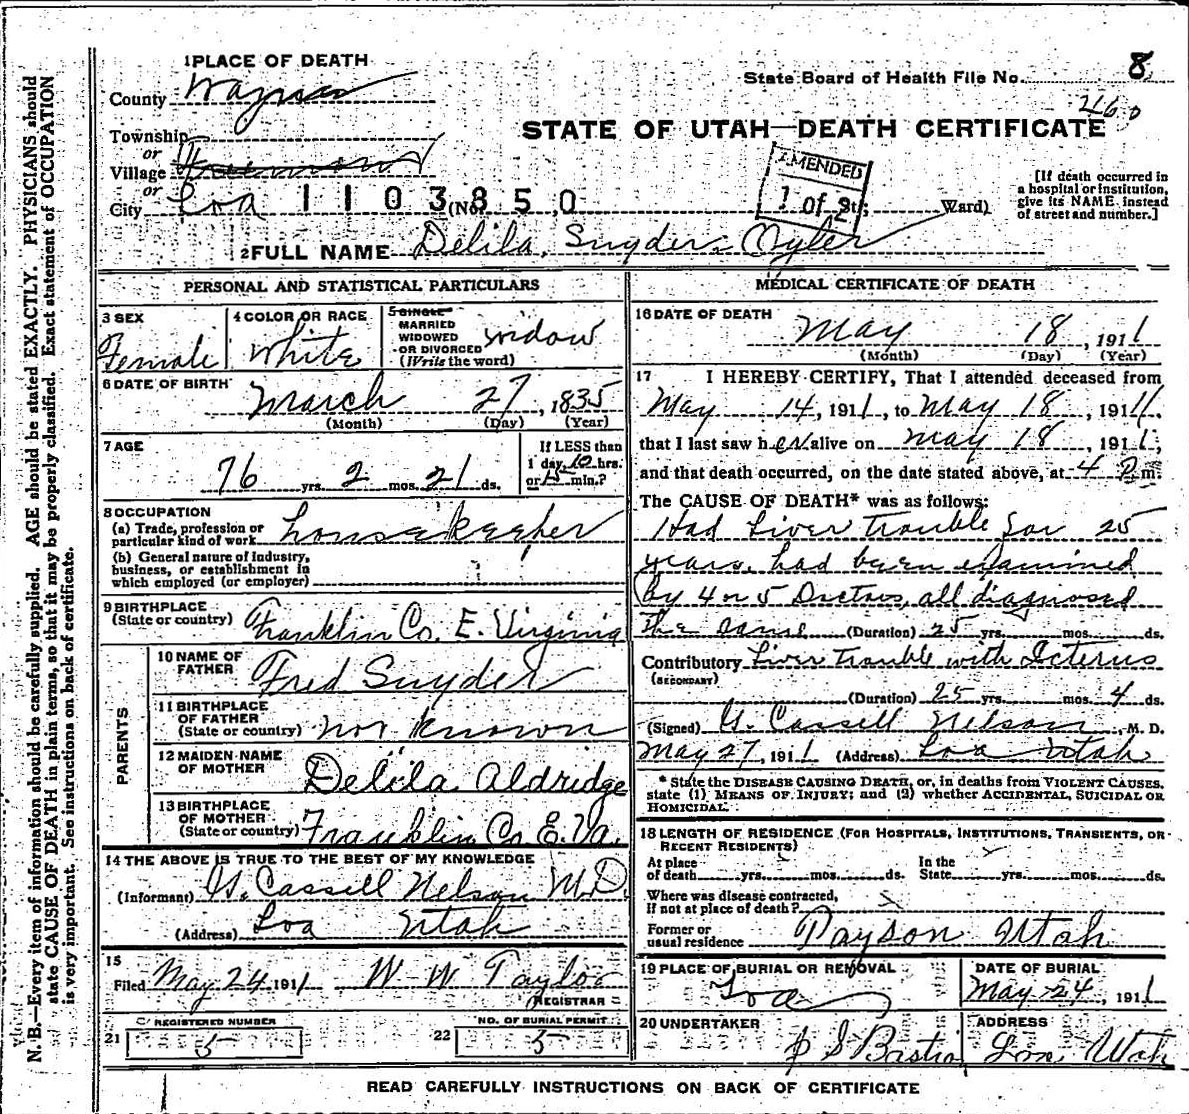 1 PLACE OF DEATH
County Wayne
Township
or
Village Fremont
or
City Loa 1103850 (No. St; Ward)
State Board of Health File No. 8
260
STATE OF UTAH—DEATH CERTIFICATE
AMENDED
1 of 2
[If death occurred in
a hospital or institution,
give its NAME instead
of street and number.]
2 FULL NAME Delila, Snyder Oyler
PERSONAL AND STATISTICAL PARTICULARS
3 SEX
Female
4 COLOR OR RACE
White
5 SINGLE
MARRIED
WIDOWED
OR DIVORCED
(Write the word)
widow
6 DATE OF BIRTH
March 27, 1835
(Month) (Day) (Year)
7 AGE
76 yrs. 2 mos. 21 ds.
If LESS than
1 day, 10 hrs.
or 15 min.?
8 OCCUPATION
(a) Trade, profession or
particular kind of work housekeeper
(b) General nature of industry,
business, or establishment in
which employed (or employer)
9 BIRTHPLACE
(State or country) Franklin Co. E. Virginia
PARENTS
10 NAME OF
FATHER Fred Snyder
11 BIRTHPLACE
OF FATHER
(State or country) not known
12 MAIDEN NAME
OF MOTHER Delila Aldridge
13 BIRTHPLACE
OF MOTHER
(State or country) Franklin Co. E. Va.
14 THE ABOVE IS TRUE TO THE BEST OF MY KNOWLEDGE
(Informant) G. Cassell Nelson M.D.
(Address) Loa Utah
15
Filed May 24 1911 W W Taylor
REGISTRAR
21 REGISTERED NUMBER
5
22 NO. OF BURIAL PERMIT
5
MEDICAL CERTIFICATE OF DEATH
16 DATE OF DEATH
May 18, 1911
(Month) (Day) (Year)
17 I HEREBY CERTIFY, That I attended deceased from
May 14, 1911, to May 18, 1911,
that I last saw her alive on May 18, 1911,
and that death occurred, on the date stated above, at 4 P m.
The CAUSE OF DEATH* was as follows:
Had Liver trouble for 25
years. had been examined
by 4 or 5 Doctors, all diagnosed
the same (Duration) 25 yrs. mos. ds.
Contributory Liver Trouble with Icterus
(SECONDARY)
(Duration) 25 yrs. mos. 4 ds.
(Signed) G. Cassell Nelson, M. D.
May 27, 1911 (Address) Loa Utah
* State the DISEASE CAUSING DEATH, or, in deaths from VIOLENT CAUSES,
state (1) MEANS OF INJURY; and (2) whether ACCIDENTAL, SUICIDAL OR
HOMICIDAL.
18 LENGTH OF RESIDENCE (FOR HOSPITALS, INSTITUTIONS, TRANSIENTS, OR
RECENT RESIDENTS)
At place
of death yrs. mos. ds.
In the
State yrs. mos. ds.
Where was disease contracted,
If not at place of death?
Former or
usual residence Payson Utah
19 PLACE OF BURIAL OR REMOVAL
Loa
DATE OF BURIAL
May 24, 1911
20 UNDERTAKER
ADDRESS
Loa, Utah
READ CAREFULLY INSTRUCTIONS ON BACK OF CERTIFICATE
N. B.—Every item of information should be carefully supplied. AGE should be stated EXACTLY. PHYSICIANS should
state CAUSE OF DEATH in plain terms, so that it may be properly classified. Exact statement of OCCUPATION
is very important. See instructions on back of certificate.